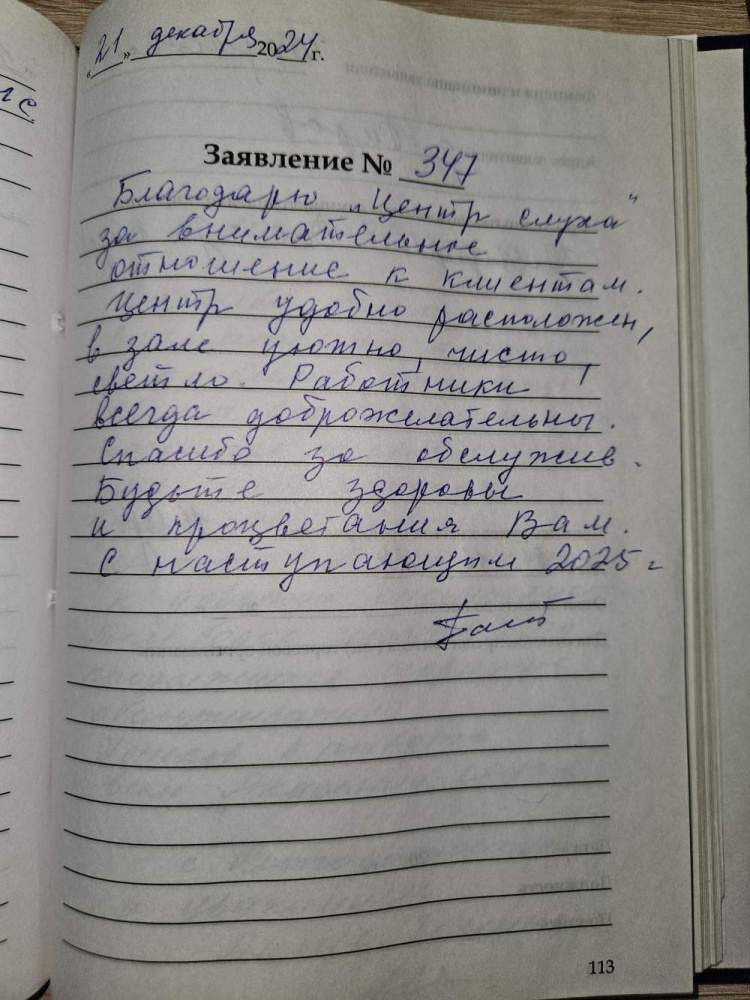 "21" декабря 2024 г.
Заявление № 347
Благодарю „Центр слуха"
за внимательное
отношение к клиентам.
Центр удобно расположен,
в зале уютно, чисто,
светло. Работники
всегда доброжелательны.
Спасибо за обслужив.
Будьте здоровы
и процветания Вам.
С наступающим 2025 г
113